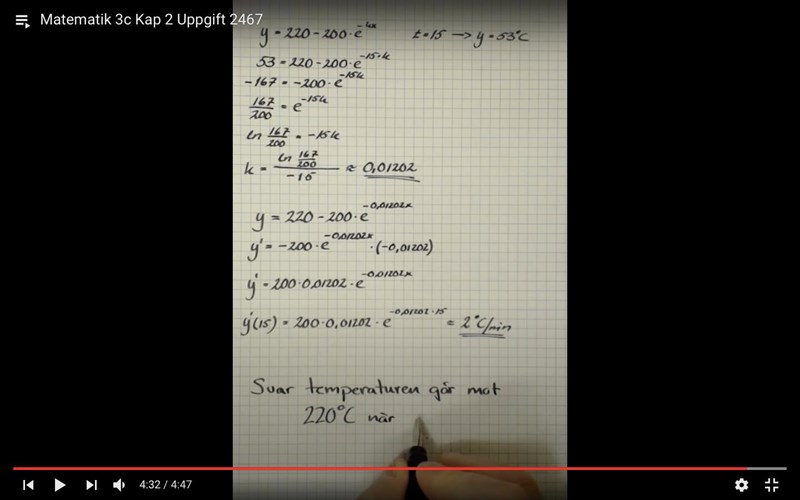 Matematik 3c Kap 2 Uppgift 2467
y = 220 - 200 · e^-kx t = 15 → y = 53°C
53 = 220 - 200 · e^-15·k
-167 = -200 · e^-15k
167/200 = e^-15k
ln 167/200 = -15k
k = ln 167/200 / -15 ≈ 0,01202
y = 220 - 200 · e^-0,01202x
y' = -200 · e^-0,01202x · (-0,01202)
y' = 200 · 0,01202 · e^-0,01202x
y'(15) = 200 · 0,01202 · e^-0,01202·15 = 2°C/min
Svar temperaturen går mot
220°C när
4:32 / 4:47